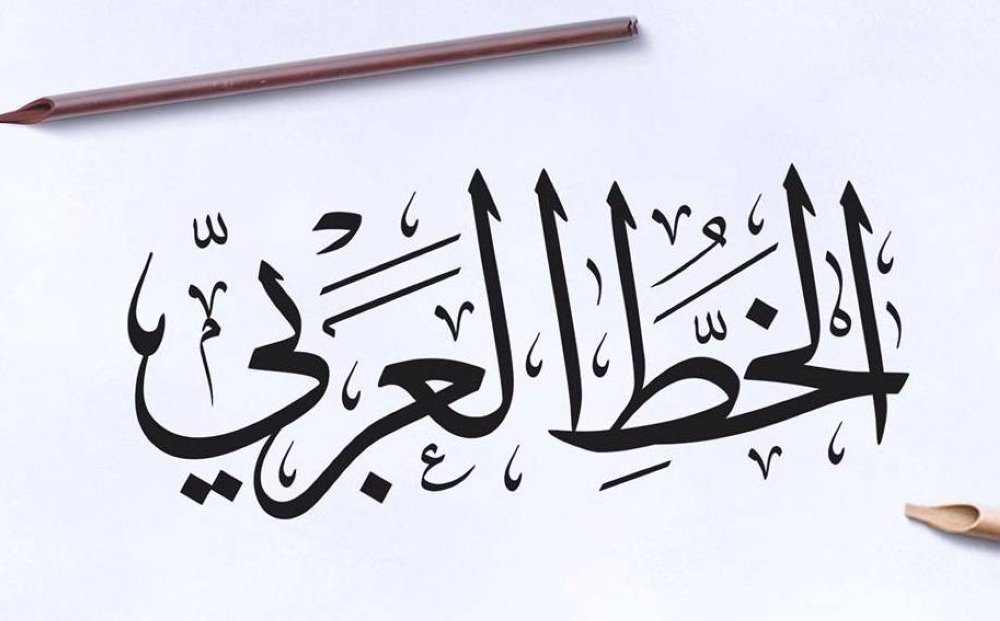 الخطُّ العَرْبيّ